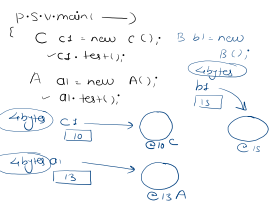 p.s.v.main( — )
{
C c1 = new C();
c1.test();
B b1 = new
B();
A a1 = new A();
a1.test();
4bytes
b1
13
4bytes c1
10
@10 C
@15
4bytes a1
13
@13 A